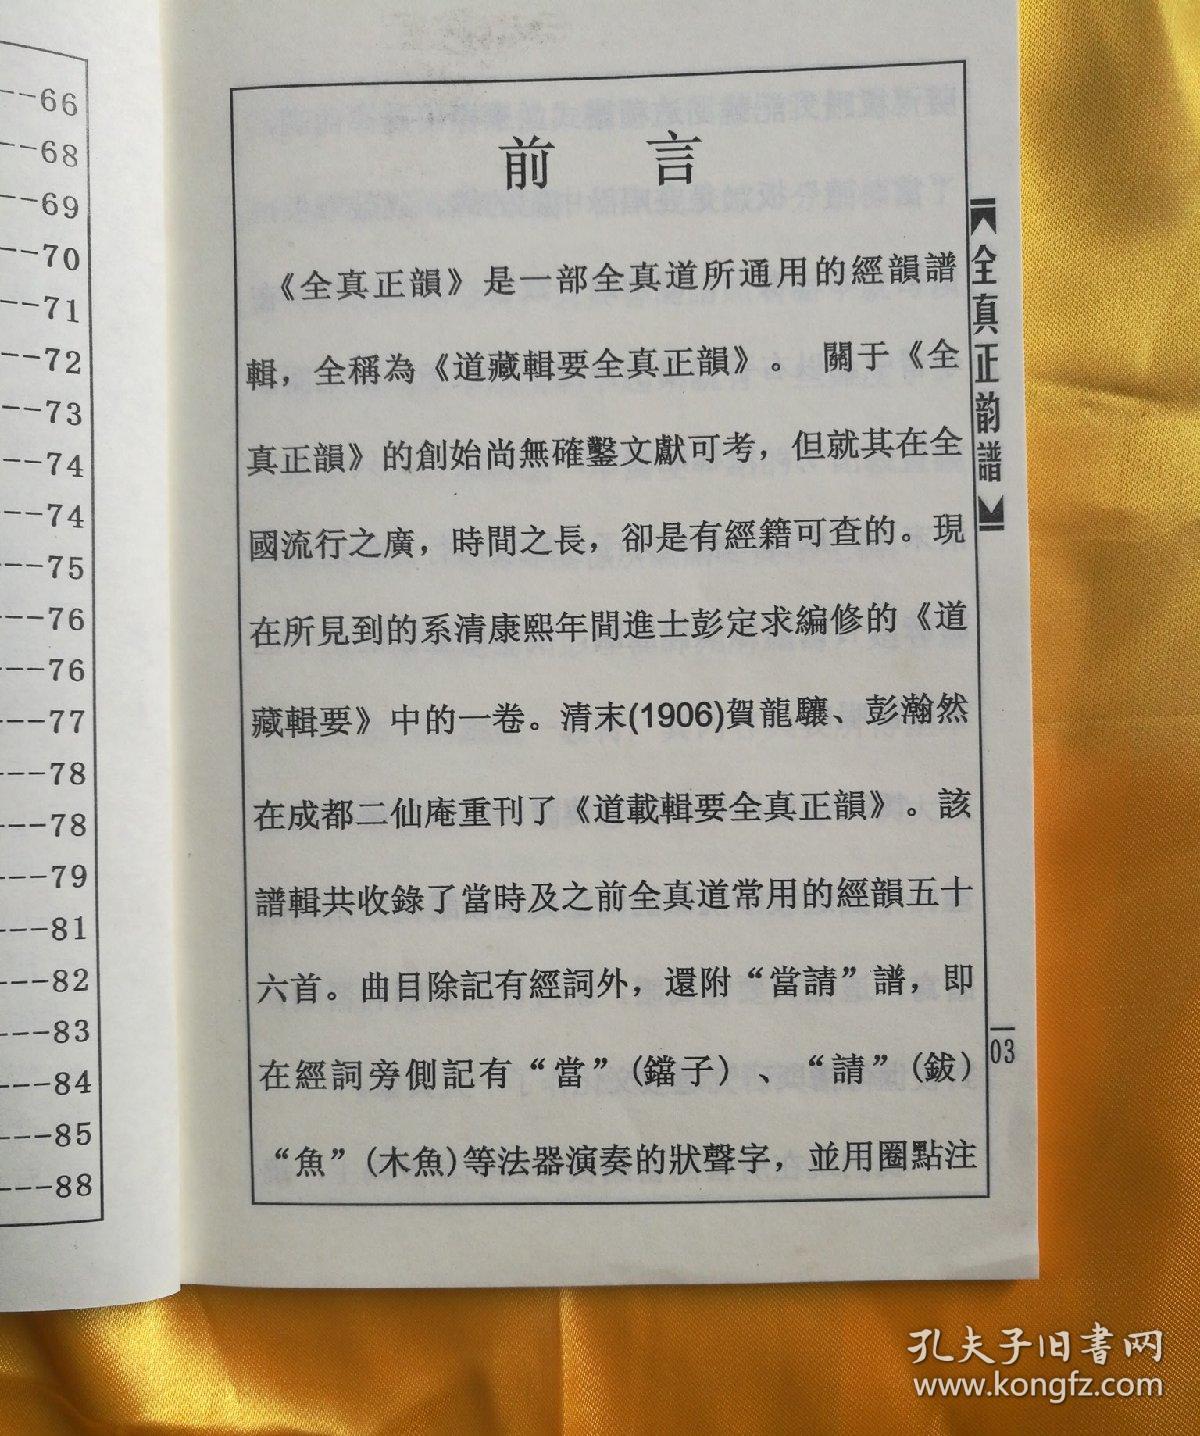 --66
--68
--69
--70
--71
--72
---73
---74
---74
---75
---76
---76
---77
---78
---78
---79
---81
---82
---83
---84
---85
---88
前 言
《全真正韻》是一部全真道所通用的經韻譜
輯，全稱為《道藏輯要全真正韻》。 關于《全
真正韻》的創始尚無確鑿文獻可考，但就其在全
國流行之廣，時間之長，卻是有經籍可查的。現
在所見到的系清康熙年間進士彭定求編修的《道
藏輯要》中的一卷。清末(1906)賀龍驤、彭瀚然
在成都二仙庵重刊了《道載輯要全真正韻》。該
譜輯共收錄了當時及之前全真道常用的經韻五十
六首。曲目除記有經詞外，還附“當請”譜，即
在經詞旁側記有“當”(鐺子)、“請”(鈸)
“魚”(木魚)等法器演奏的狀聲字，並用圈點注
全真正韵譜
03
孔夫子旧书网
www.kongfz.com